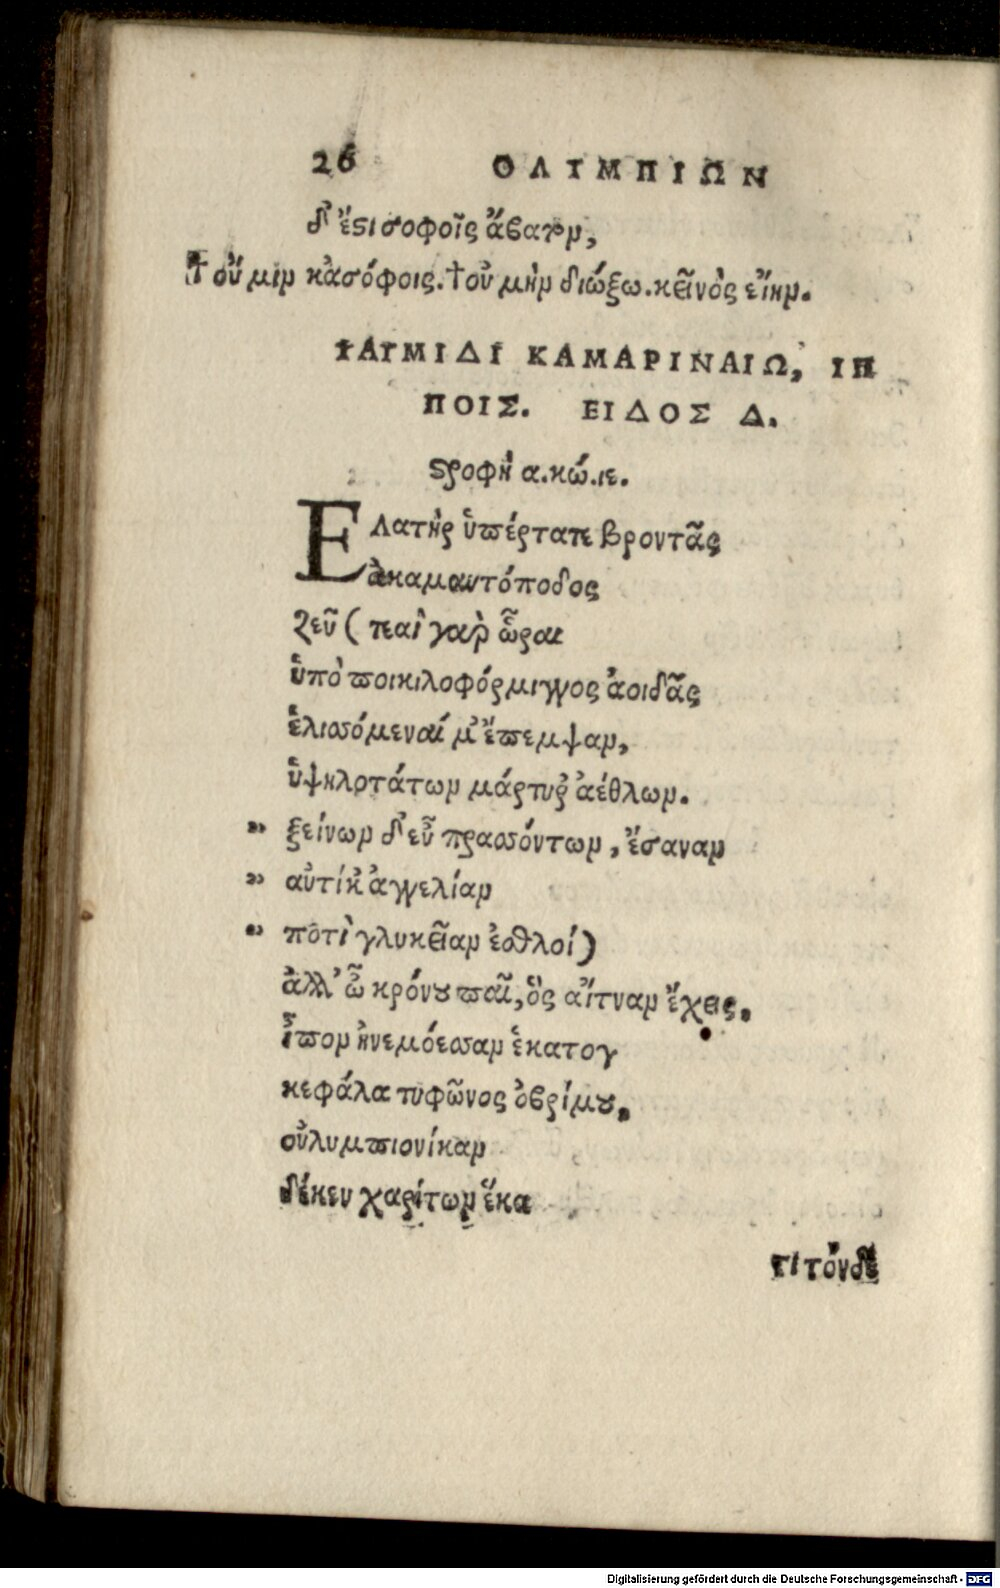 26 ΟΛΥΜΠΙΩΝ
δ' ἔστι σοφοῖς ἄβατον,
† οὔ μιν κἀσόφοις. † οὐ μὴν διώξω. κεῖνὸς εἴην.
ΨΑΥΜΙΔΙ ΚΑΜΑΡΙΝΑΙΩ, ΙΠ
ΠΟΙΣ. ΕΙΔΟΣ Δ.
στροφὴ α. κώ. ιε.
ΕΛατὴρ ὑπέρτατε βροντᾶς
ἀκαμαντόποδος
Ζεῦ ( τεαὶ γὰρ ὧραι
ὑπὸ ποικιλοφόρμιγγος ἀοιδᾶς
ἑλισσόμεναί μ' ἔπεμψαν,
ὑψηλοτάτων μάρτυρ' ἀέθλων.
" ξείνων δ' εὖ πρασσόντων, ἔσαναν
" αὐτίκ' ἀγγελίαν
" ποτὶ γλυκεῖαν ἐσθλοί )
ἀλλ' ὦ κρόνου παῖ, ὃς αἴτναν ἔχεις.
ἶπον ἠνεμόεσσαν ἑκατογ
κεφάλα τυφῶνος ὀβρίμου,
οὐλυμπιονίκαν
δέκευ χαρίτων ἕκα
τι τόνδε